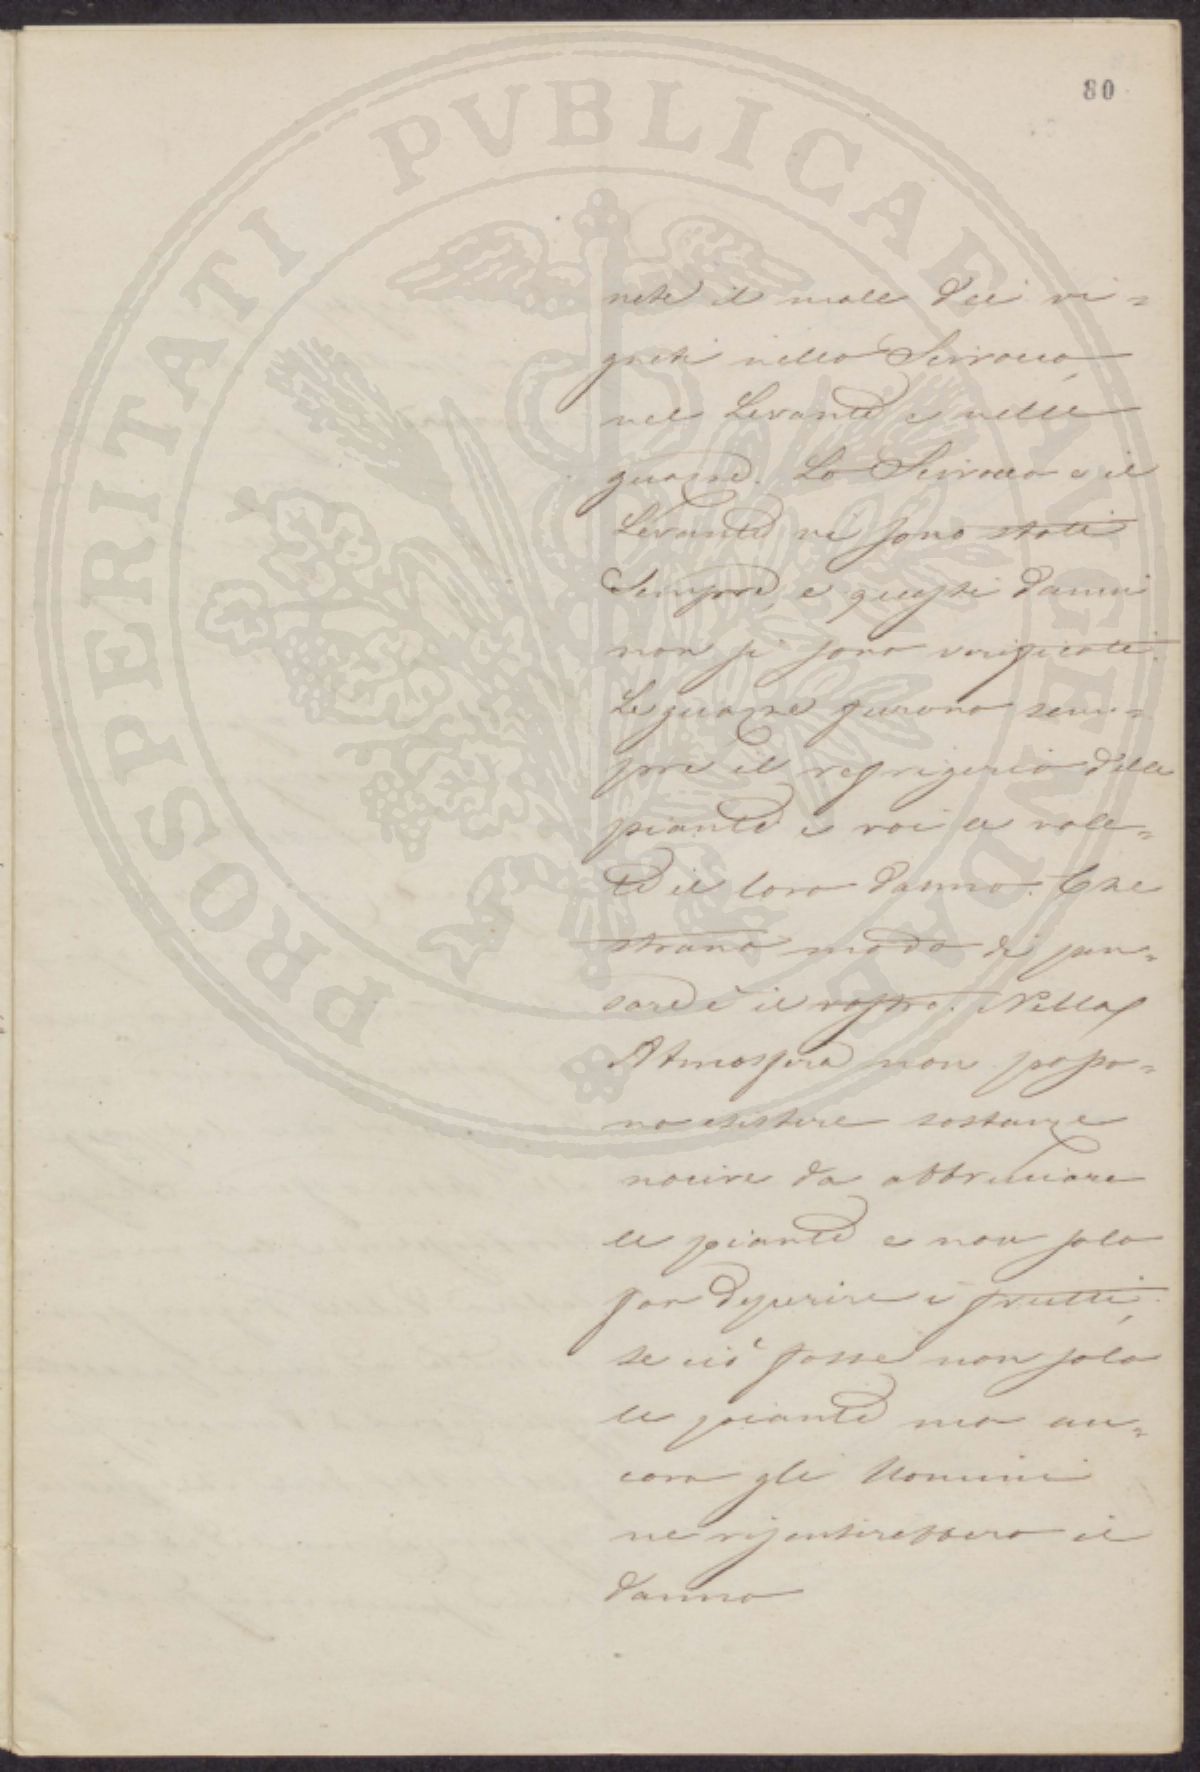 80
PROSPERITATI PVBLICAE AVGENDAE
nete il male dei vi=
gneti nello Scirocco,
nel Levante e nelle
guazze. Lo Scirocco e il
Levante vi sono stati
Sempre, e questi danni
non si sono verificati.
Le guazze furono sem=
pre il refrigerio delle
piante e voi le vole=
te il loro danno. Che
strano modo di pen=
sare è il vostro. Nella
Atmosfera non posso=
no esistere sostanze
nocive da abbruciare
le piante e non solo
far deperire i frutti,
se ciò fosse non solo
le piante ma an=
cora gli Uomini
ne risentirebbero il
danno